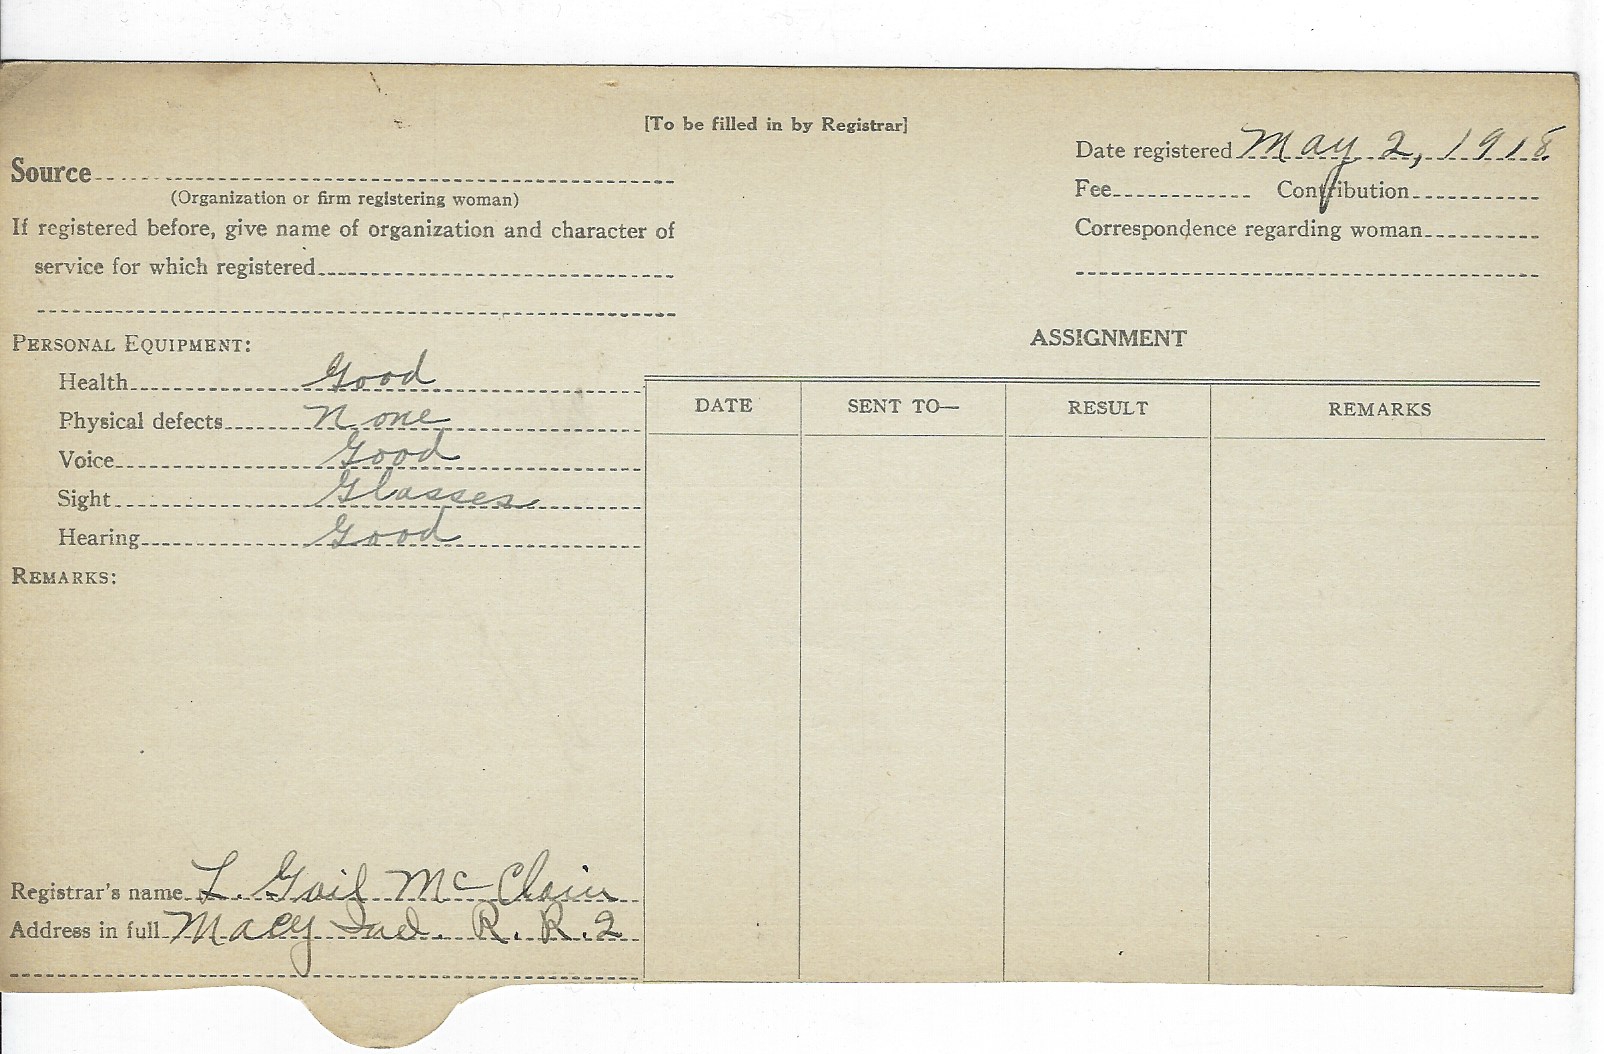 [To be filled in by Registrar]
Date registered May 2, 1918.
Source
(Organization or firm registering woman)
Fee Contribution
If registered before, give name of organization and character of
Correspondence regarding woman
service for which registered
PERSONAL EQUIPMENT:
ASSIGNMENT
Health Good
Physical defects None
Voice Good
Sight Glasses
Hearing Good
DATE SENT TO— RESULT REMARKS
REMARKS:
Registrar's name L. Gail McClain
Address in full Macy Ind. R. R. 2